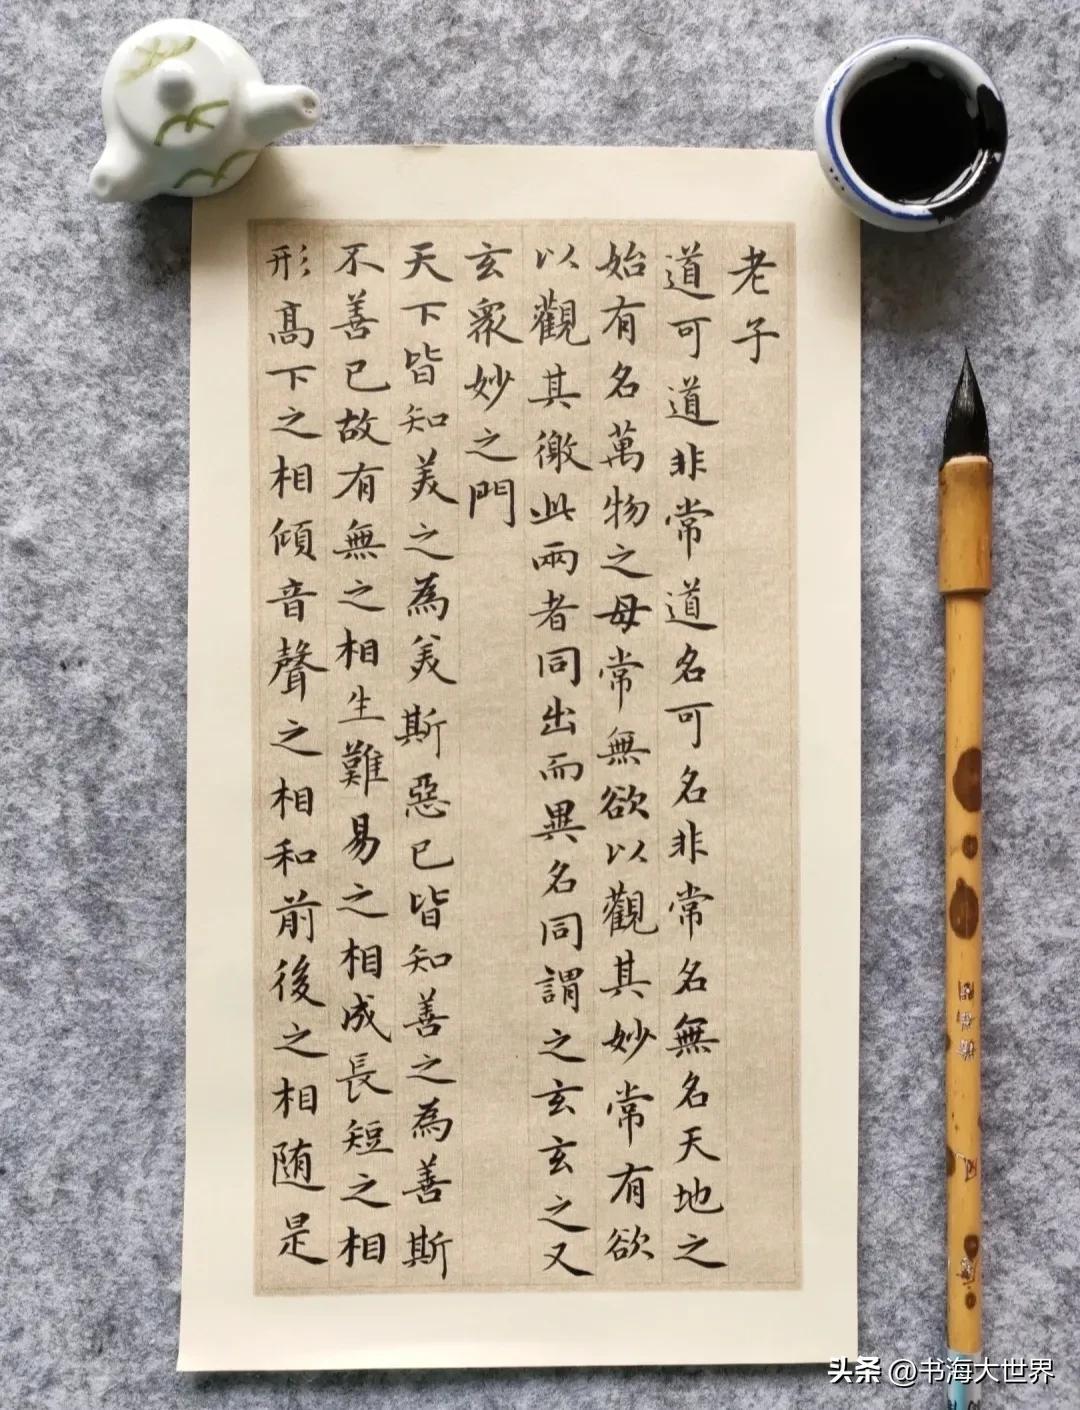 老子
道可道非常道名可名非常名無名天地之
始有名萬物之母常無欲以觀其妙常有欲
以觀其徼此兩者同出而異名同謂之玄玄之又
玄衆妙之門
天下皆知美之為美斯惡已皆知善之為善斯
不善已故有無之相生難易之相成長短之相
形高下之相傾音聲之相和前後之相随是
头条 @书海大世界